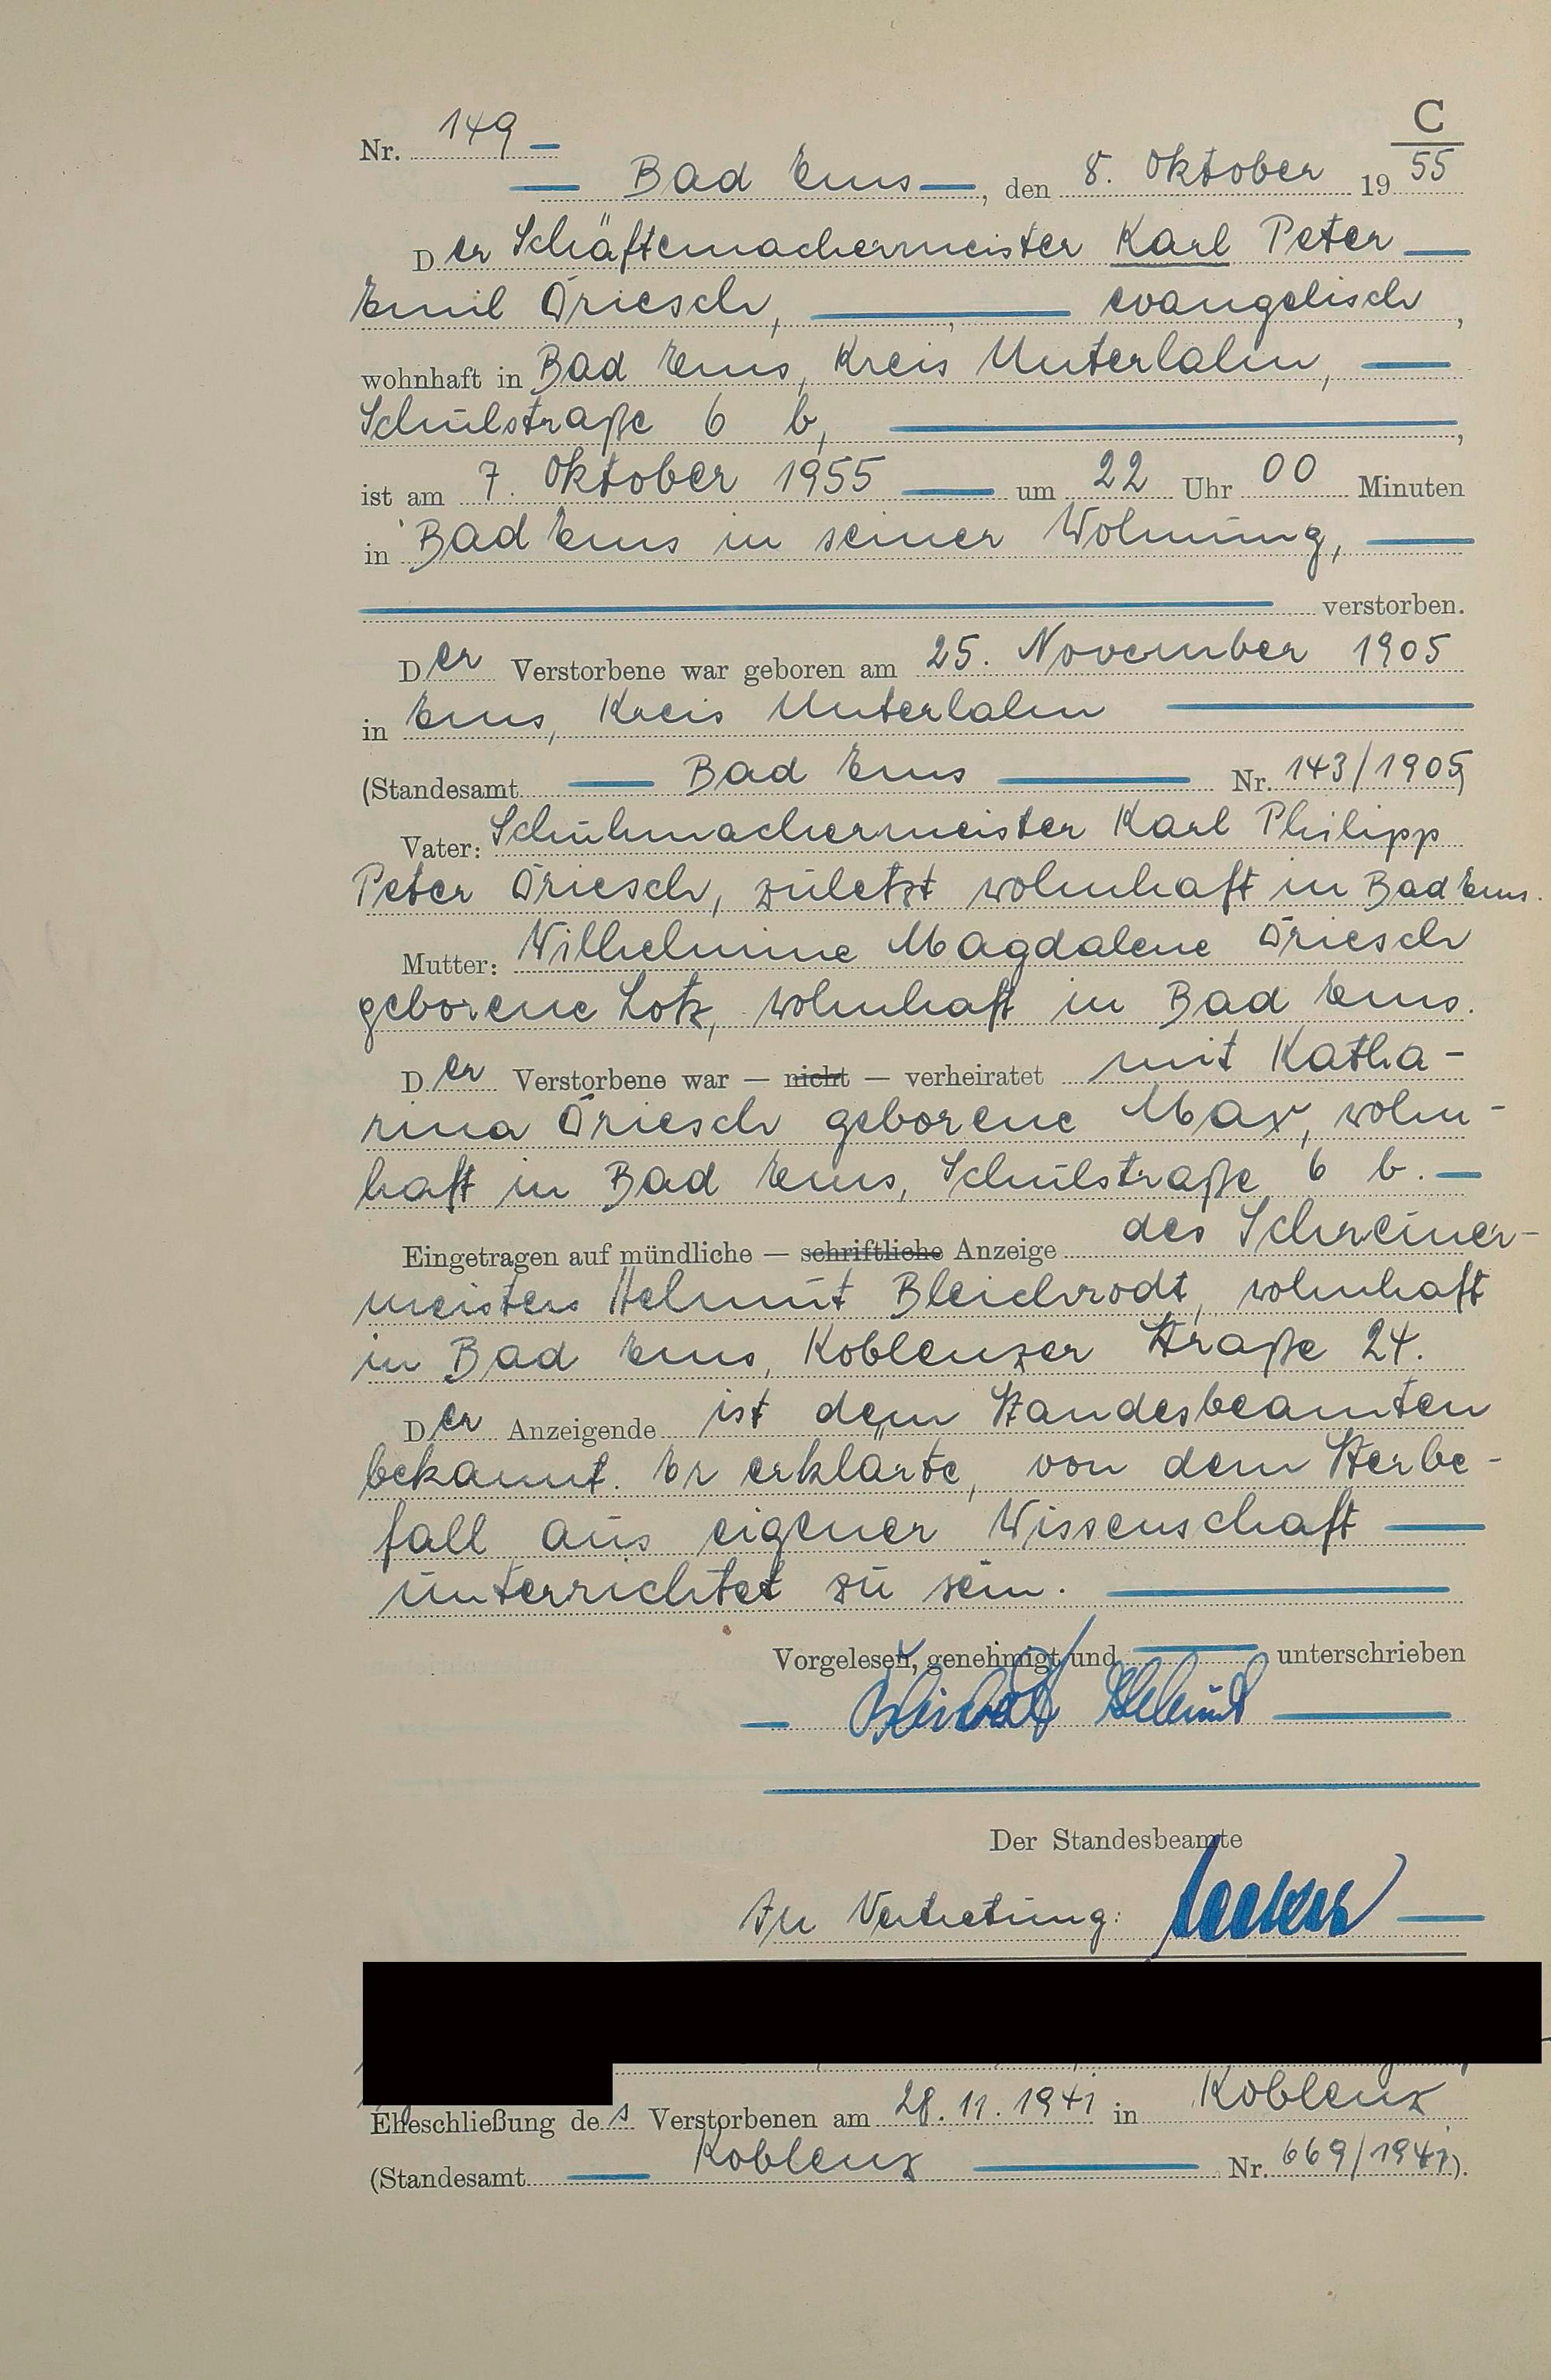 C
Nr. 149
Bad Ems, den 8. Oktober 1955
Der Schäftemachermeister Karl Peter
Emil Driesch, evangelisch,
wohnhaft in Bad Ems, Kreis Unterlahn,
Schulstraße 6 b,
ist am 7. Oktober 1955 um 22 Uhr 00 Minuten
in Bad Ems in seiner Wohnung,
verstorben.
Der Verstorbene war geboren am 25. November 1905
in Ems, Kreis Unterlahn
(Standesamt Bad Ems Nr. 143/1905)
Vater: Schuhmachermeister Karl Philipp
Peter Driesch, zuletzt wohnhaft in Bad Ems.
Mutter: Wilhelmine Magdalene Driesch
geborene Lotz, wohnhaft in Bad Ems.
Der Verstorbene war — nicht — verheiratet mit Katha-
rina Driesch geborene Max, wohn-
haft in Bad Ems, Schulstraße 6 b.
Eingetragen auf mündliche — schriftliche Anzeige des Schreiner-
meisters Helmut Bleichrodt, wohnhaft
in Bad Ems, Koblenzer Straße 24.
Der Anzeigende ist dem Standesbeamten
bekannt. Er erklärte, von dem Sterbe-
fall aus eigener Wissenschaft
unterrichtet zu sein.
Vorgelesen, genehmigt und unterschrieben
Der Standesbeamte
In Vertretung:
Eheschließung des Verstorbenen am 28.11.1941 in Koblenz
(Standesamt Koblenz Nr. 669/1941).